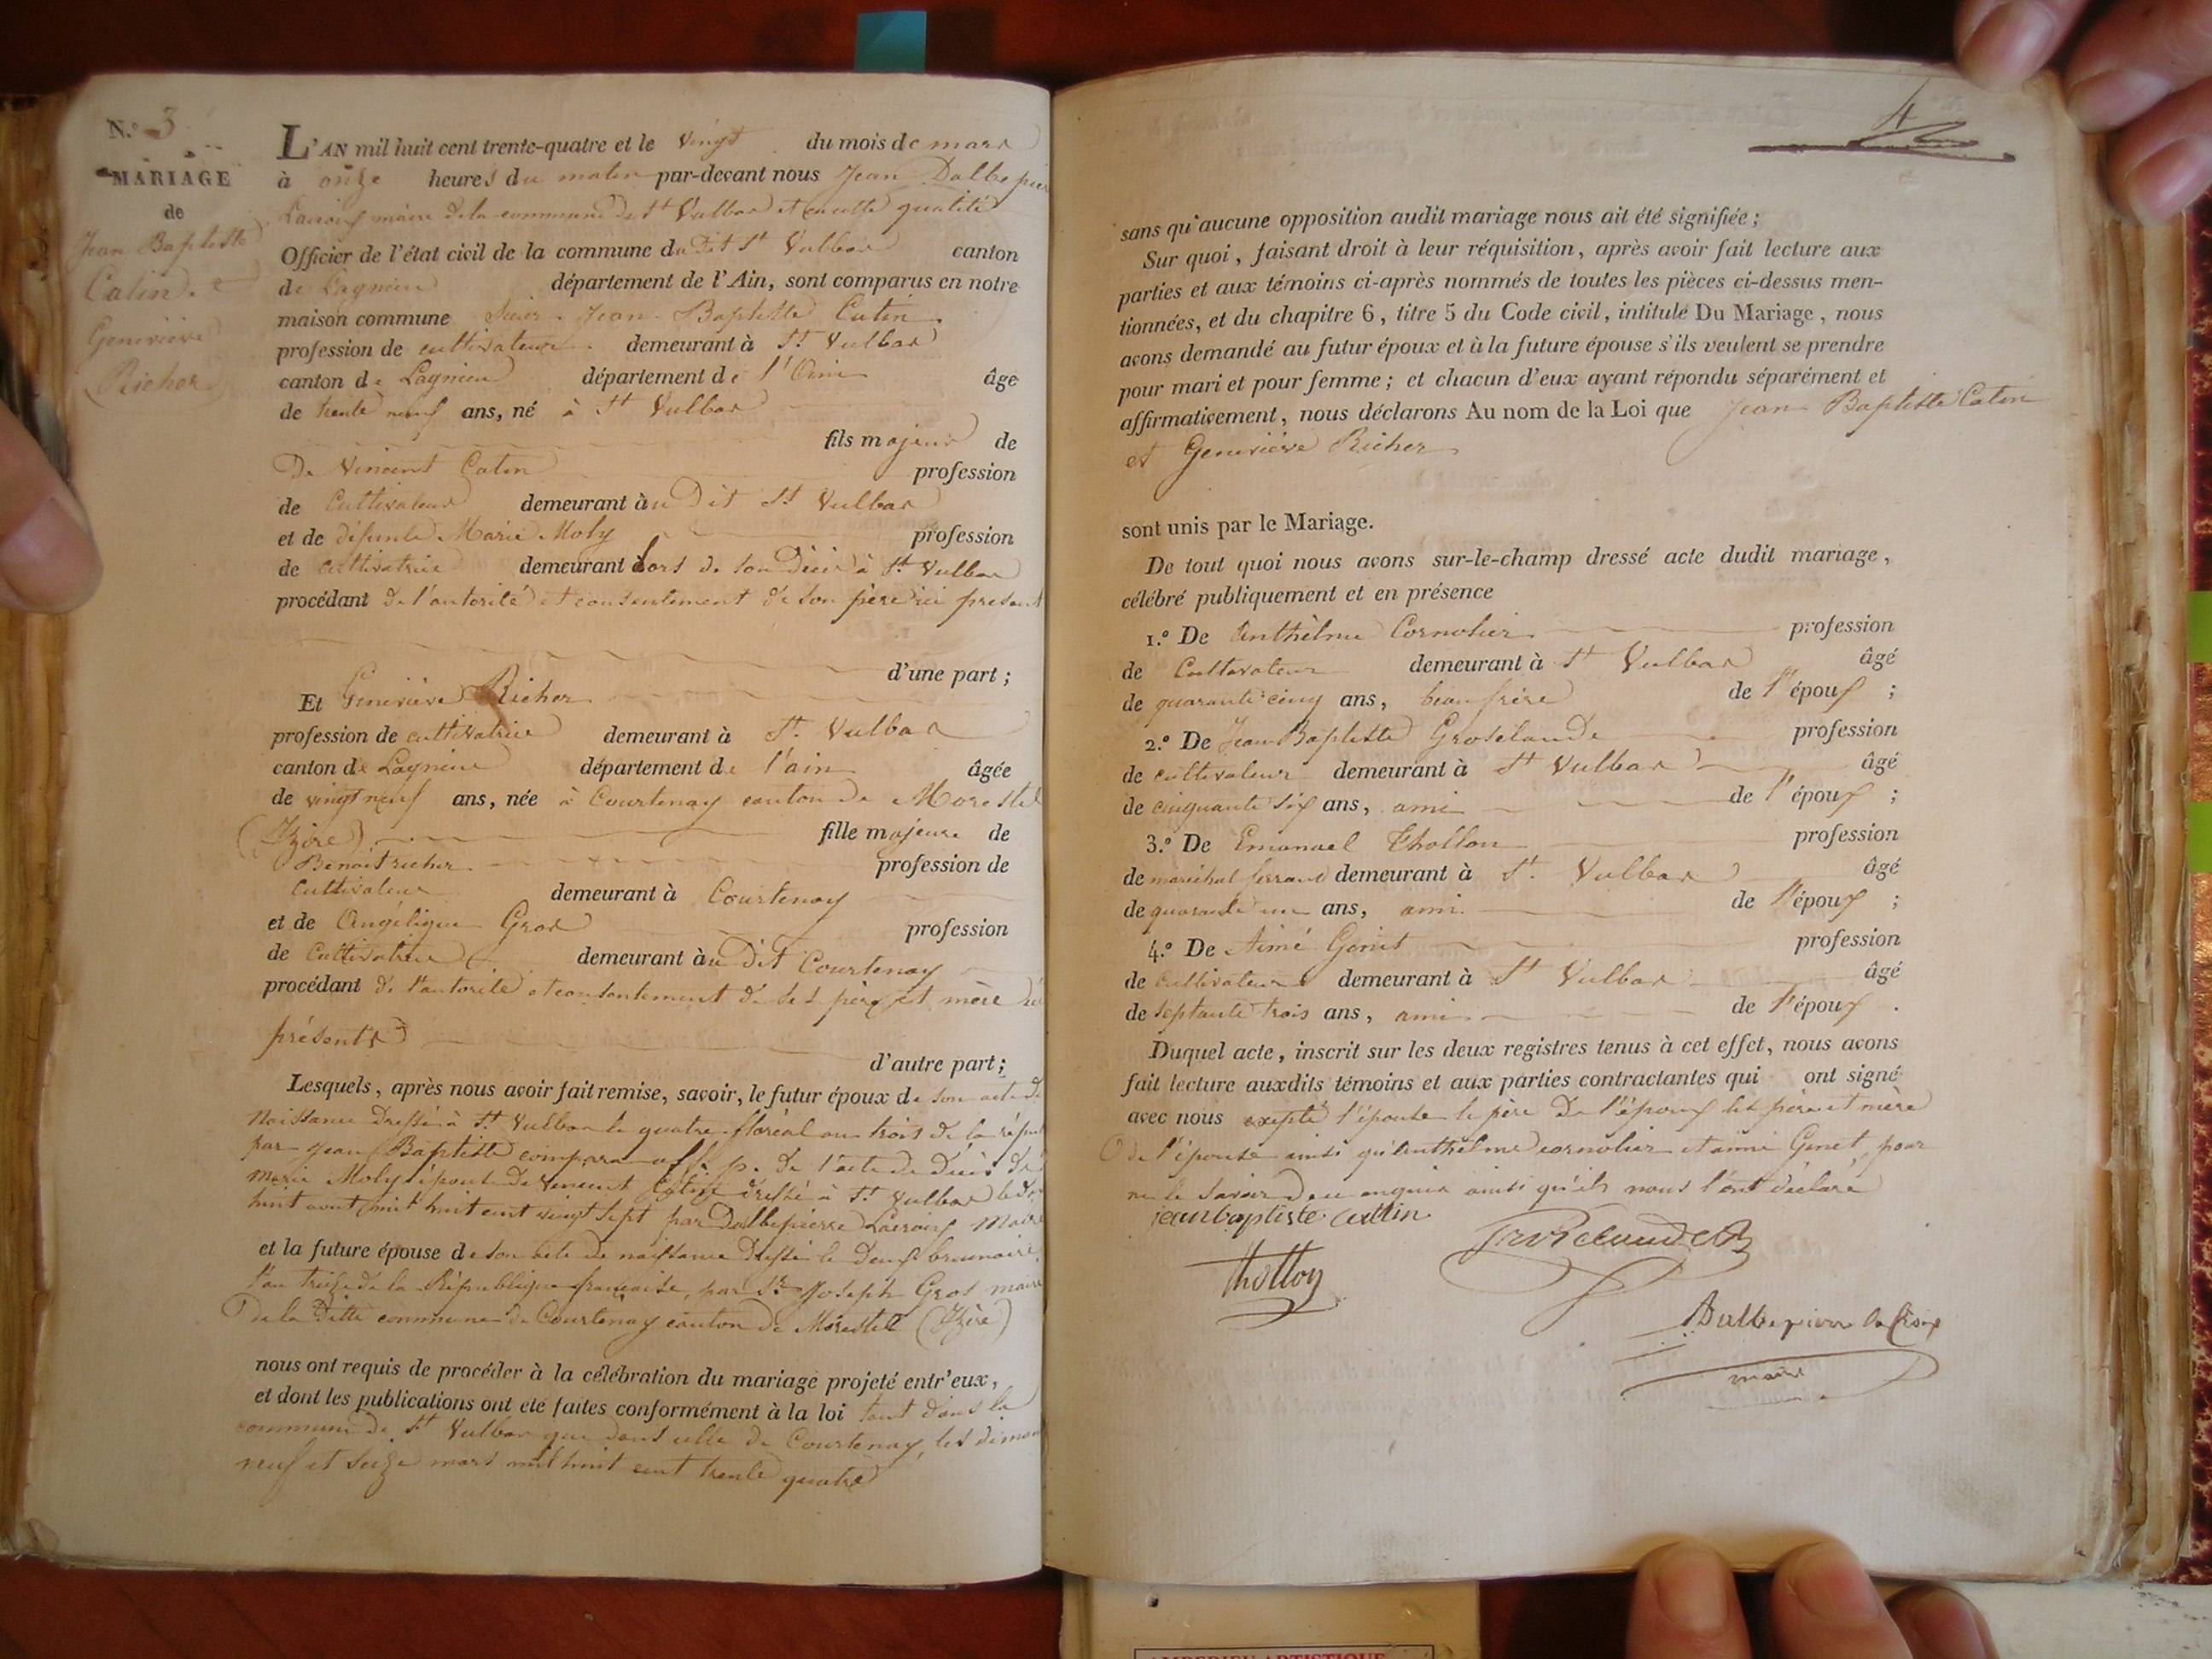 N.º 3
MARIAGE
de
Jean Baptiste
Catin. et
Geneviève
Richer
L'AN mil huit cent trente-quatre et le vingt du mois de mars
à onze heures du matin par-devant nous Jean Dalbepier
Lacroix maire de la commune de St Vulbas et en cette qualité
Officier de l'état civil de la commune du dit St Vulbas canton
de Lagnieu département de l'Ain, sont comparus en notre
maison commune Jean Baptiste Catin
profession de cultivateur demeurant à St Vulbas
canton de Lagnieu département de l'Ain âge
de trente neuf ans, né à St Vulbas
fils majeur de
De Vincent Catin profession
de Cultivateur demeurant àu Dit St Vulbas
et de défunte Marie Moly profession
de cultivatrice demeurant lors de son Décès à St Vulbas
procédant de l'autorité et consentement de son père ici présent
d'une part ;
Et Geneviève Richer
profession de cultivatrice demeurant à St. Vulbas
canton de Lagnieu département de l'ain âgée
de vingt neuf ans, née à Courtenay canton de Morestel
(Izère) fille majeure de
Benoit richer profession de
Cultivateur demeurant à Courtenay
et de Angélique Gros profession
de Cultivatrice demeurant àu Dit Courtenay
procédant de l'autorité et consentement de ses père et mère ici
présents
d'autre part ;
Lesquels, après nous avoir fait remise, savoir, le futur époux de son acte de
Naissance Dressé à St Vulbas le quatre floréal an trois de la répub
par Jean Baptiste off. p. de l'acte de Décès de
Marie Moly épouse De Vincent Catin dressé à St Vulbas le
huit aout mil huit cent vingt sept par Dalbepierre Lacroix Maire
et la future épouse de son acte de naissance Dressé le Deux brumaire
l'an treize de la République française, par Sr Joseph Gros maire
De la Ditte commune de Courtenay canton de Morestel (Izère)
nous ont requis de procéder à la célébration du mariage projeté entr'eux,
et dont les publications ont eté faites conformément à la loi tant dans la
commune de St Vulbas que dans celle de Courtenay, les diman
neuf et seize mars mil huit cent trente quatre
4
sans qu'aucune opposition audit mariage nous ait été signifiée ;
Sur quoi, faisant droit à leur réquisition, après avoir fait lecture aux
parties et aux témoins ci-après nommés de toutes les pièces ci-dessus men-
tionnées, et du chapitre 6, titre 5 du Code civil, intitulé Du Mariage, nous
avons demandé au futur époux et à la future épouse s'ils veulent se prendre
pour mari et pour femme ; et chacun d'eux ayant répondu séparément et
affirmativement, nous déclarons Au nom de la Loi que Jean Baptiste Catin
et Geneviève Richer
sont unis par le Mariage.
De tout quoi nous avons sur-le-champ dressé acte dudit mariage,
célébré publiquement et en présence
1.º De Anthelme Cornolier profession
de Cultivateur demeurant à St Vulbas âgé
de quarante cinq ans, beau frère de l'époux ;
2.º De Jean Baptiste Groselaude profession
de cultivateur demeurant à St Vulbas âgé
de cinquante six ans, ami de l'époux ;
3.º De Emanuel Thollon profession
de maréchal ferrand demeurant à St. Vulbas âgé
de quarante un ans, ami de l'époux ;
4.º De Aimé Genet profession
de cultivateur demeurant à St Vulbas âgé
de septante trois ans, ami de l'époux .
Duquel acte, inscrit sur les deux registres tenus à cet effet, nous avons
fait lecture auxdits témoins et aux parties contractantes qui ont signé
avec nous excepté l'épouse le père De l'époux les père et mère
de l'épouse ainsi qu'Anthelme cornolier et aimé Genet, pour
ne le savoir de ce enquis ainsi qu'ils nous l'ont déclaré
jean baptiste cattin
Thollon
Dallbepierre la Croix
maire
AMBERIEU ARTISTIQUE